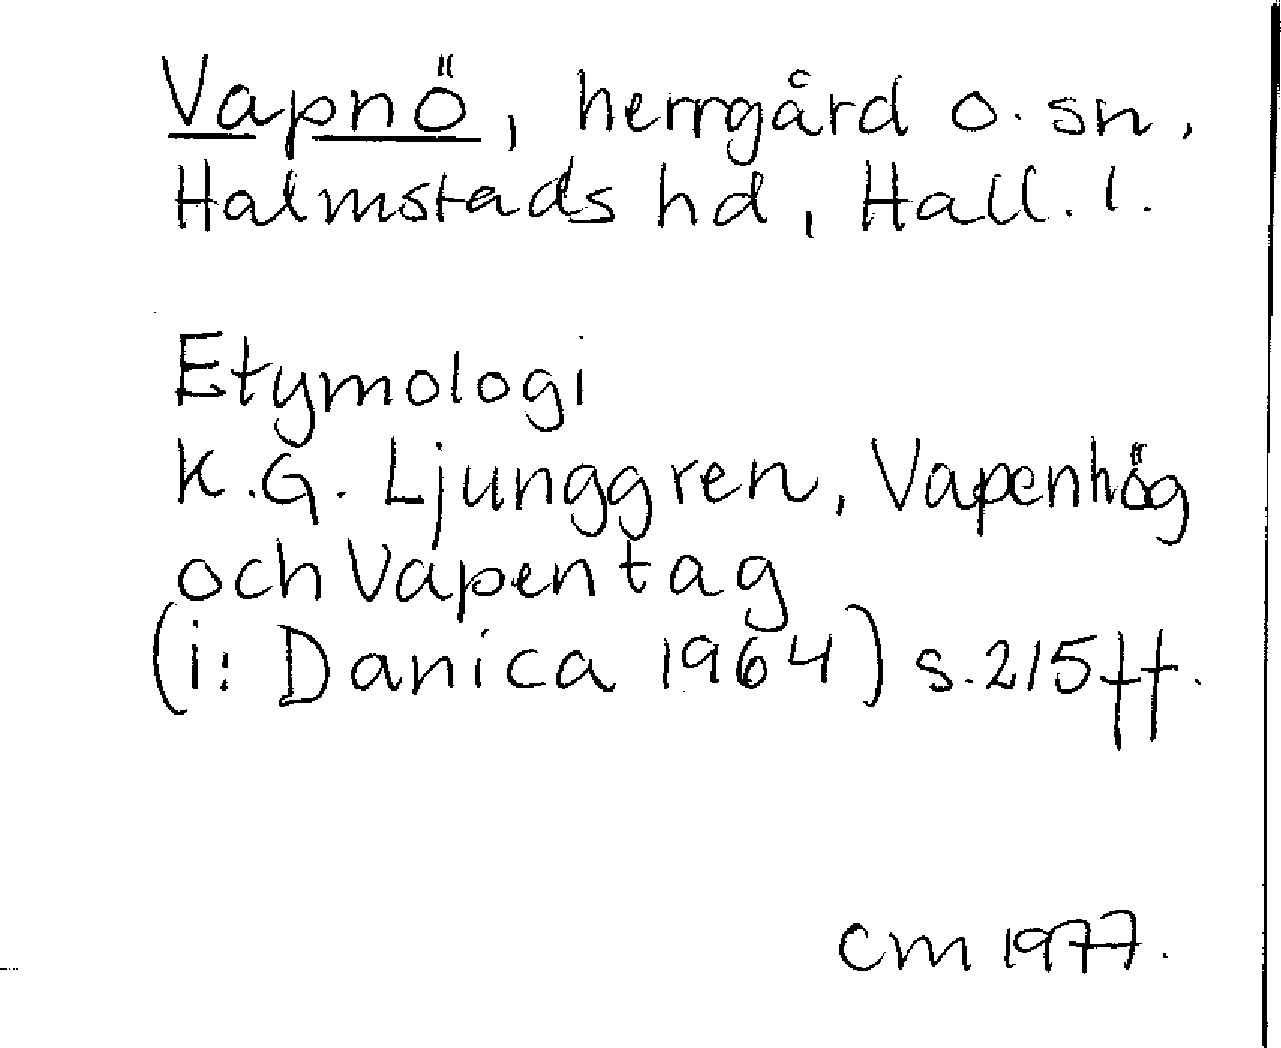 Vapnö, herrgård o. sn,
Halmstads hd, Hall. l.
Etymologi
K.G. Ljunggren, Vapenhög
och Vapentag
(i: Danica 1964) s. 215 ff.
CM 1977.